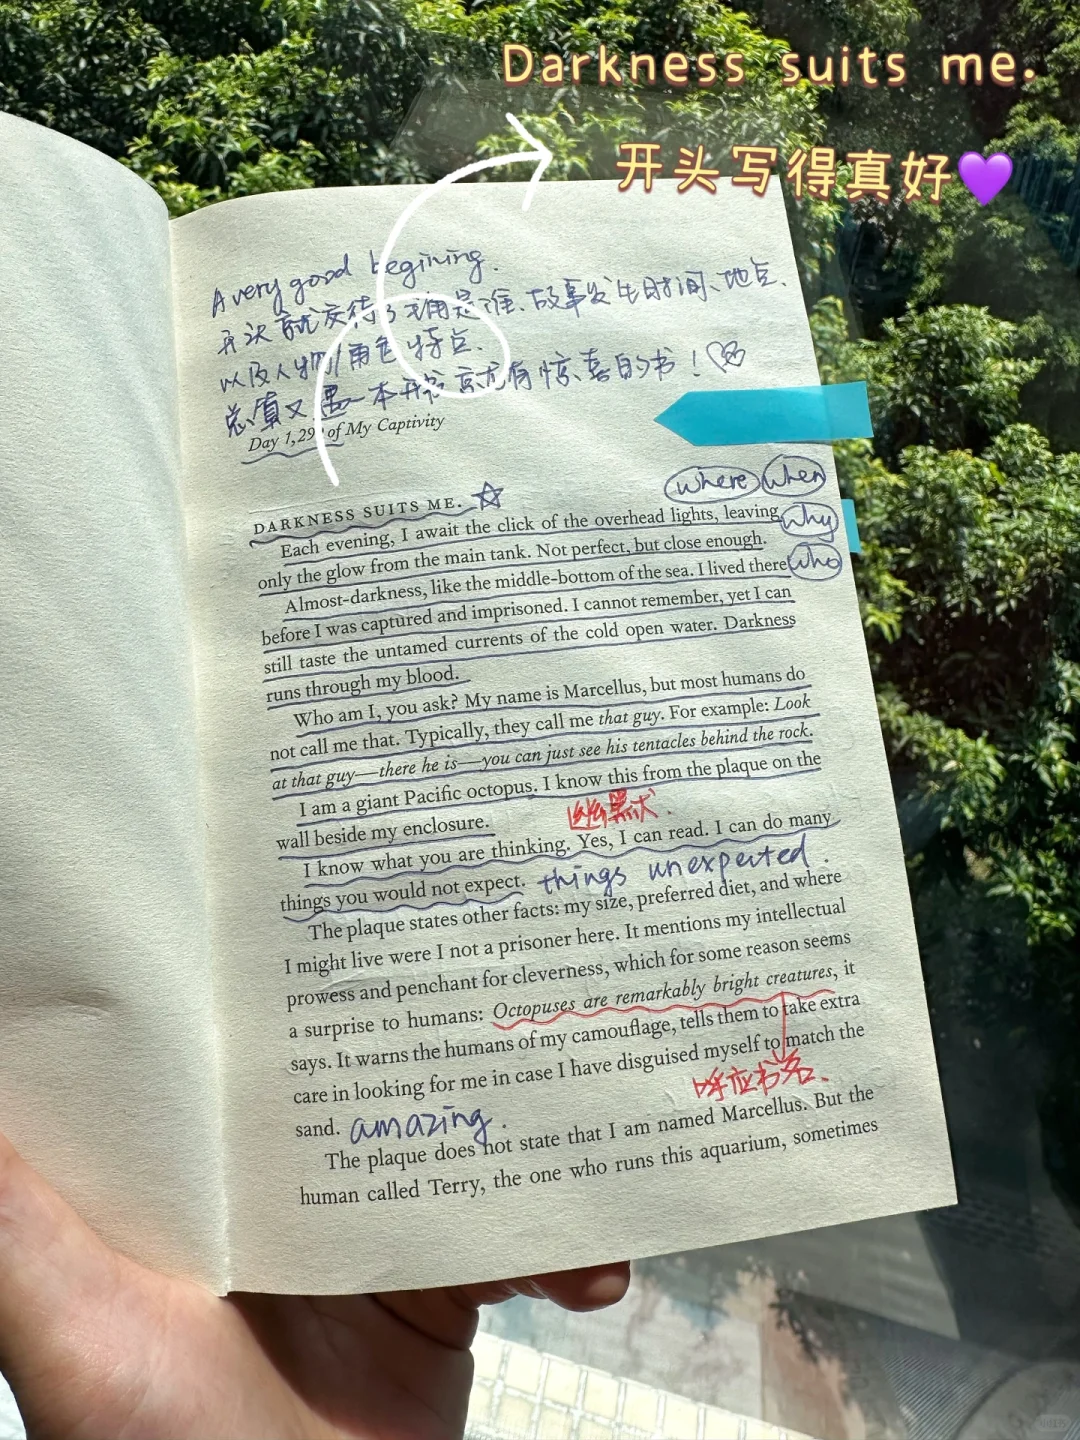 Darkness suits me.
开头写得真好
A very good begining.
开头就交待了主角是谁、故事发生时间、地点、
以及人物/角色特点.
总算又遇一本开书就有惊喜的书！
Day 1,29 of My Captivity
where when
DARKNESS SUITS ME.
Each evening, I await the click of the overhead lights, leaving
why
only the glow from the main tank. Not perfect, but close enough.
Almost-darkness, like the middle-bottom of the sea. I lived there
who
before I was captured and imprisoned. I cannot remember, yet I can
still taste the untamed currents of the cold open water. Darkness
runs through my blood.
Who am I, you ask? My name is Marcellus, but most humans do
not call me that. Typically, they call me that guy. For example: Look
at that guy—there he is—you can just see his tentacles behind the rock.
I am a giant Pacific octopus. I know this from the plaque on the
wall beside my enclosure.
幽默式.
I know what you are thinking. Yes, I can read. I can do many
things you would not expect.
things unexpected.
The plaque states other facts: my size, preferred diet, and where
I might live were I not a prisoner here. It mentions my intellectual
prowess and penchant for cleverness, which for some reason seems
a surprise to humans: Octopuses are remarkably bright creatures, it
says. It warns the humans of my camouflage, tells them to take extra
care in looking for me in case I have disguised myself to match the
呼应书名.
sand.
amazing.
The plaque does not state that I am named Marcellus. But the
human called Terry, the one who runs this aquarium, sometimes